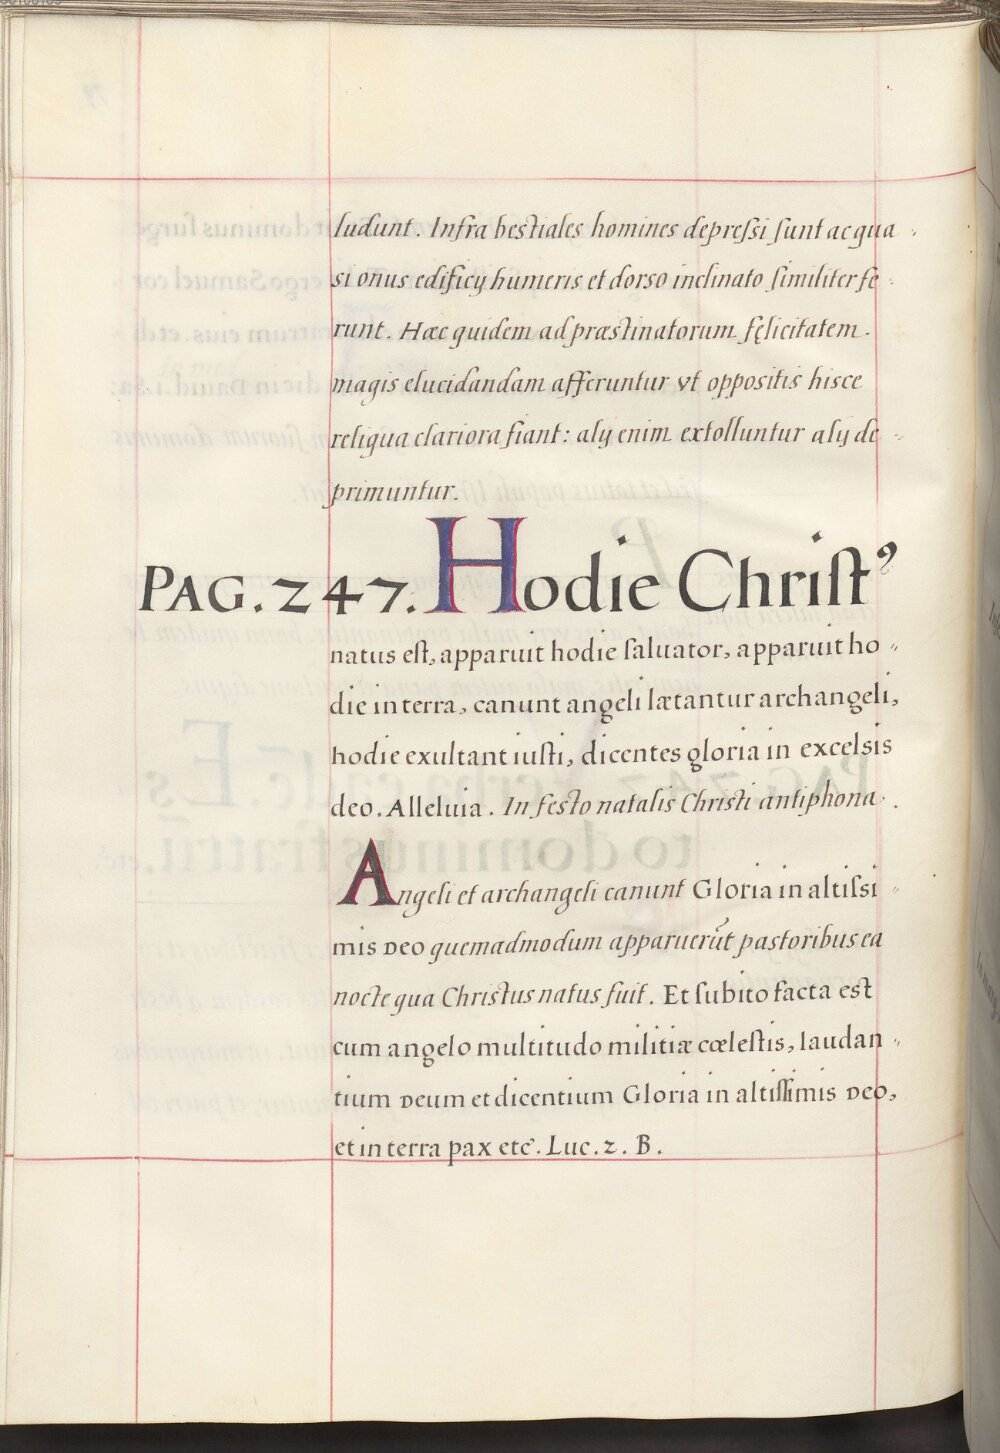 ludunt. Infra bestiales homines depreſsi ſunt ac qua
si onus edificÿ humeris et dorso inclinato ſimiliter fe
runt. Hæc quidem ad præstinatorum fęlicitatem.
magis elucidandam afferuntur vt oppositis hisce
reliqua clariora fiant: alÿ enim extolluntur alÿ de
primuntur.
PAG. 247. Hodie Chriſtꝰ
natus eſt, apparuit hodie ſaluator, apparuit ho
die in terra, canunt angeli lætantur archangeli,
hodie exultant iuſti, dicentes gloria in excelsis
deo. Alleluia. In festo natalis Christi antiphona.
Angeli et archangeli canunt Gloria in altiſsi
mis DEO quemadmodum apparuerūt pastoribus ea
nocte qua Christus natus fuit. Et ſubito facta est
cum angelo multitudo militiæ cœleſtis, laudan
tium DEum et dicentium Gloria in altiſſimis DEO,
et in terra pax etc̃. Luc. 2. B.